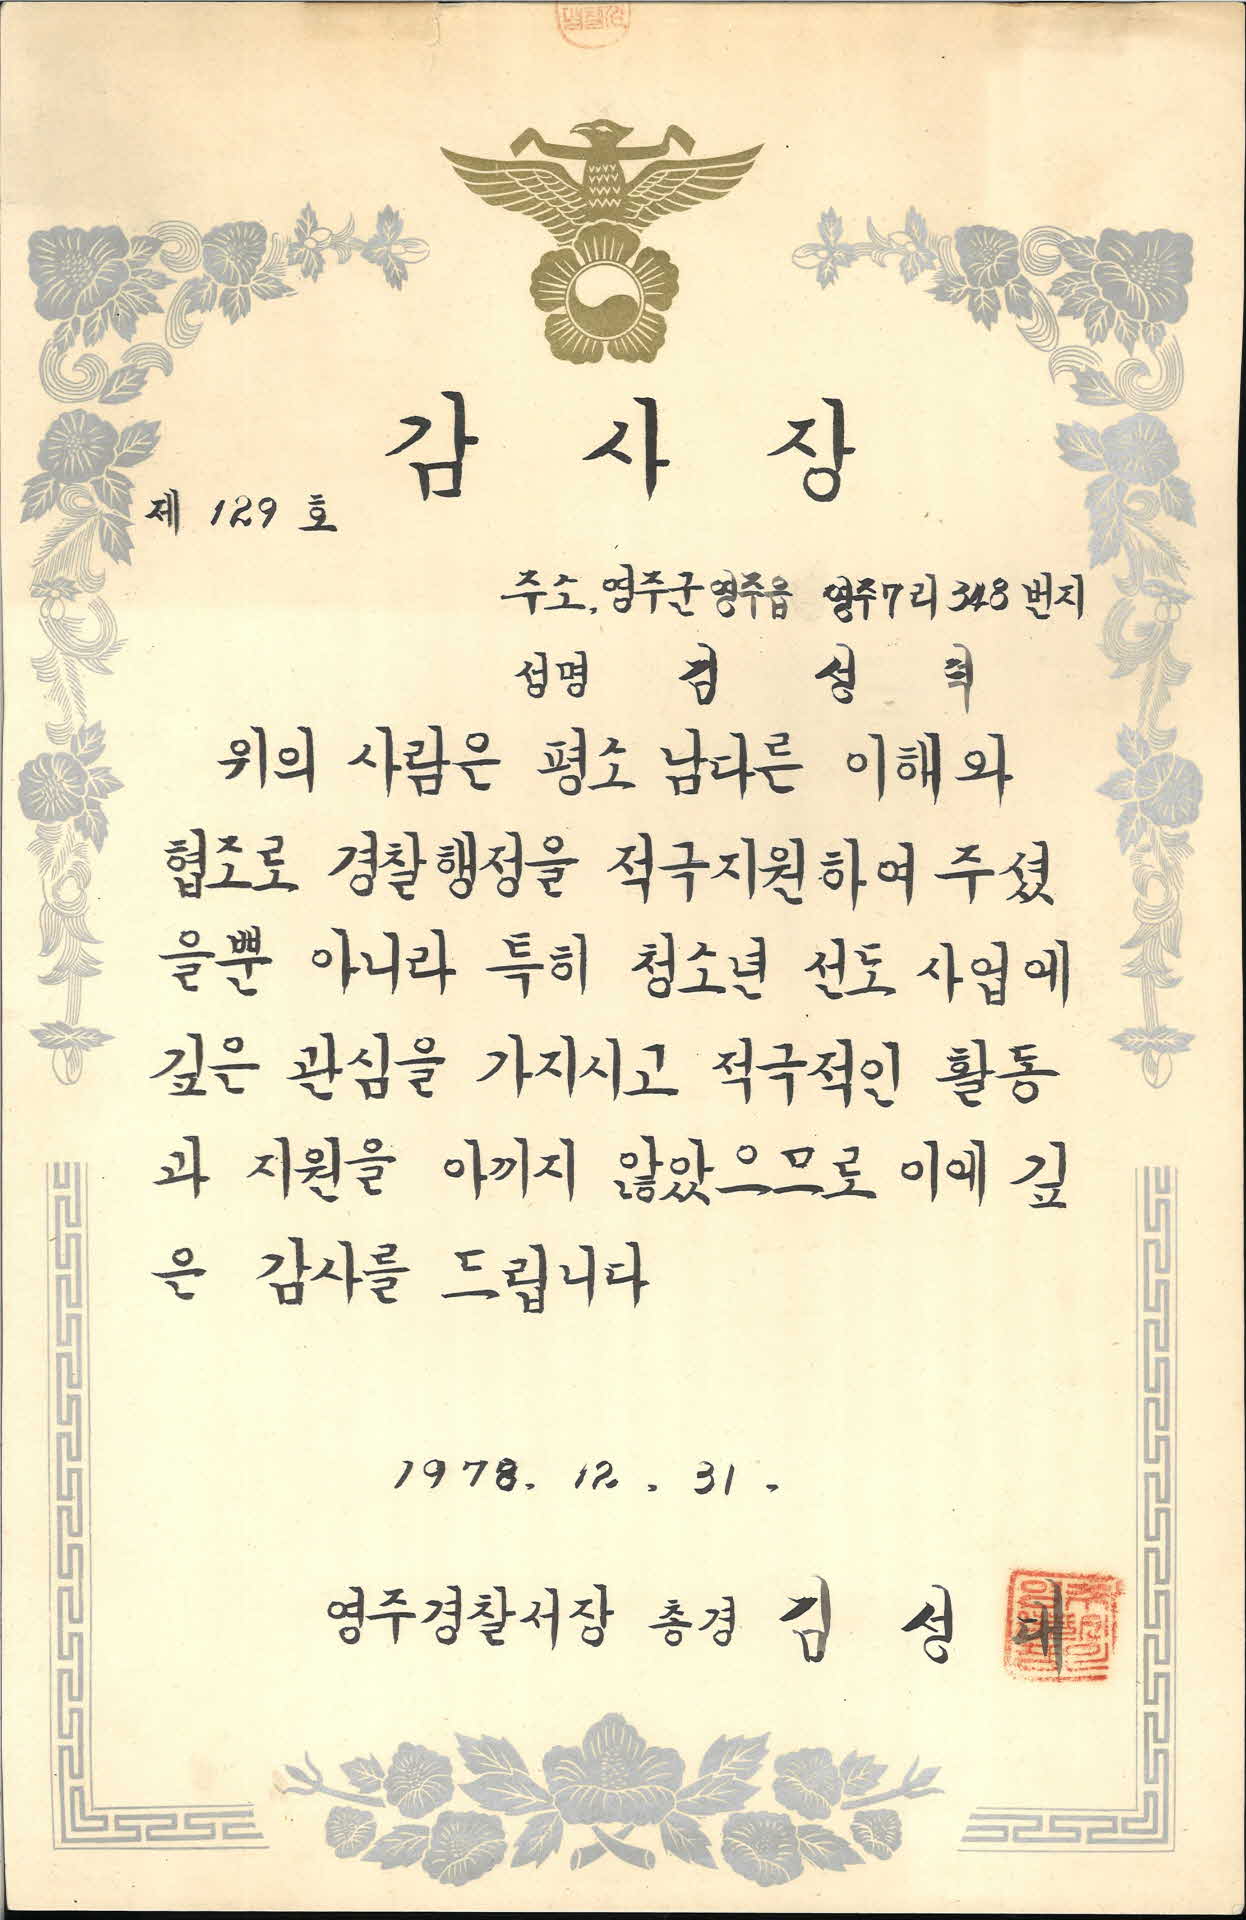 감 사 장
제 129 호
주소, 영주군 영주읍 영주7리 348 번지
성명 김 성
위의 사람은 평소 남다른 이해와
협조로 경찰행정을 적극지원하여 주셨
을뿐 아니라 특히 청소년 선도 사업에
깊은 관심을 가지시고 적극적인 활동
과 지원을 아끼지 않았으므로 이에 깊
은 감사를 드립니다
1978. 12. 31.
영주경찰서장 총경 김 성